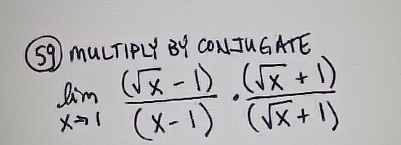 (59) MULTIPLY BY CONJUGATE
lim x→1 (√x - 1)/(x-1) · (√x + 1)/(√x + 1)